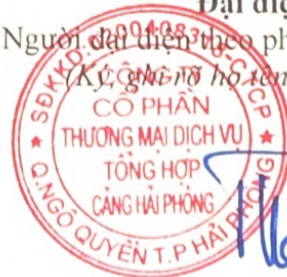 Đại diệ
Người đại diện theo ph
(Ký, ghi rõ họ tên
CÔNG TY
CỔ PHẦN
THƯƠNG MẠI DỊCH VỤ
TỔNG HỢP
CẢNG HẢI PHÒNG
Q.NGÔ QUYỀN T.P HẢI PHÒNG